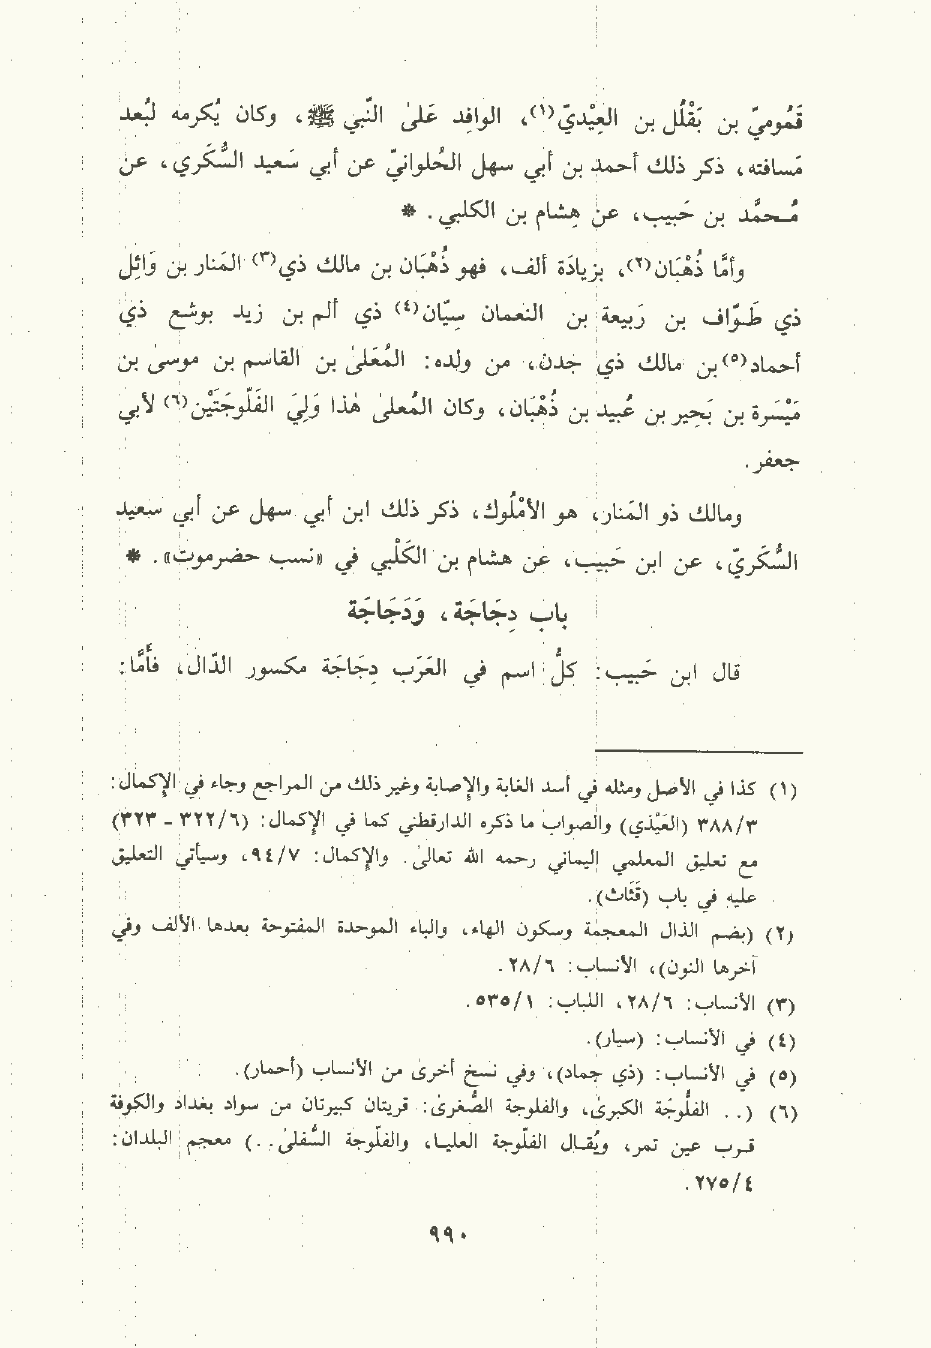 قَمُوميّ بن بَقْلُل بن العِيْديّ(١)، الوافِد عَلىٰ النَّبي ﷺ، وكان يُكرمه لبُعد
مَسافته، ذكر ذلك أحمد بن أبي سهل الحُلوانيّ عن أبي سَعيد السُّكَري، عن
مُـحمَّـد بن حَبيب، عن هِشام بن الكلبي. *
وأمَّا ذُهْبَان(٢)، بزيادَة ألف، فهو ذُهْبَان بن مالك ذي(٣) المَنار بن وَائِل
ذي طَـوّاف بن رَبيعة بن النعمان سِيّان(٤) ذي ألم بن زيد بوشع ذي
أحماد(٥) بن مالك ذي جدن، من ولده: المُعَلىٰ بن القاسم بن موسىٰ بن
مَيْسَرة بن بَحِير بن عُبيد بن ذُهْبَان، وكان المُعلىٰ هٰذا وَلِيَ الفَلّوجَتْين(٦) لأبي
جعفر.
ومالك ذو المَنار، هو الأمْلُوك، ذكر ذلك ابن أبي سهل عن أبي سعيد
السُّكَريّ، عن ابن حَبيب، عن هشام بن الكَلْبي في «نسب حضرموت». *
باب دِجَاجَة، وَدَجَاجَة
قال ابن حَبيب: كلُّ اسم في العَرَب دِجَاجَة مكسور الدّال، فأَمَّا:
(١) كذا في الأصل ومثله في أسد الغابة والإصابة وغير ذلك من المراجع وجاء في الإكمال:
٣٨٨/٣ (العَيْذي) والصواب ما ذكره الدارقطني كما في الإكمال: (٣٢٢/٦ - ٣٢٣)
مع تعليق المعلمي اليماني رحمه الله تعالىٰ. والإكمال: ٩٤/٧، وسيأتي التعليق
عليه في باب (قَثَاث).
(٢) (بضم الذال المعجمة وسكون الهاء، والباء الموحدة المفتوحة بعدها الألف وفي
آخرها النون)، الأنساب: ٢٨/٦.
(٣) الأنساب: ٢٨/٦، اللباب: ٥٣٥/١.
(٤) في الأنساب: (سيار).
(٥) في الأنساب: (ذي جماد)، وفي نسخ أخرىٰ من الأنساب (أحمار).
(٦) (.. الفلُّوجَة الكبرىٰ، والفلوجة الصُّغرىٰ: قريتان كبيرتان من سواد بغداد والكوفة
قـرب عين تمر، ويُقـال الفلّوجة العليـا، والفلّوجة السُّفلىٰ..) معجم البلدان:
٢٧٥/٤.
٩٩٠